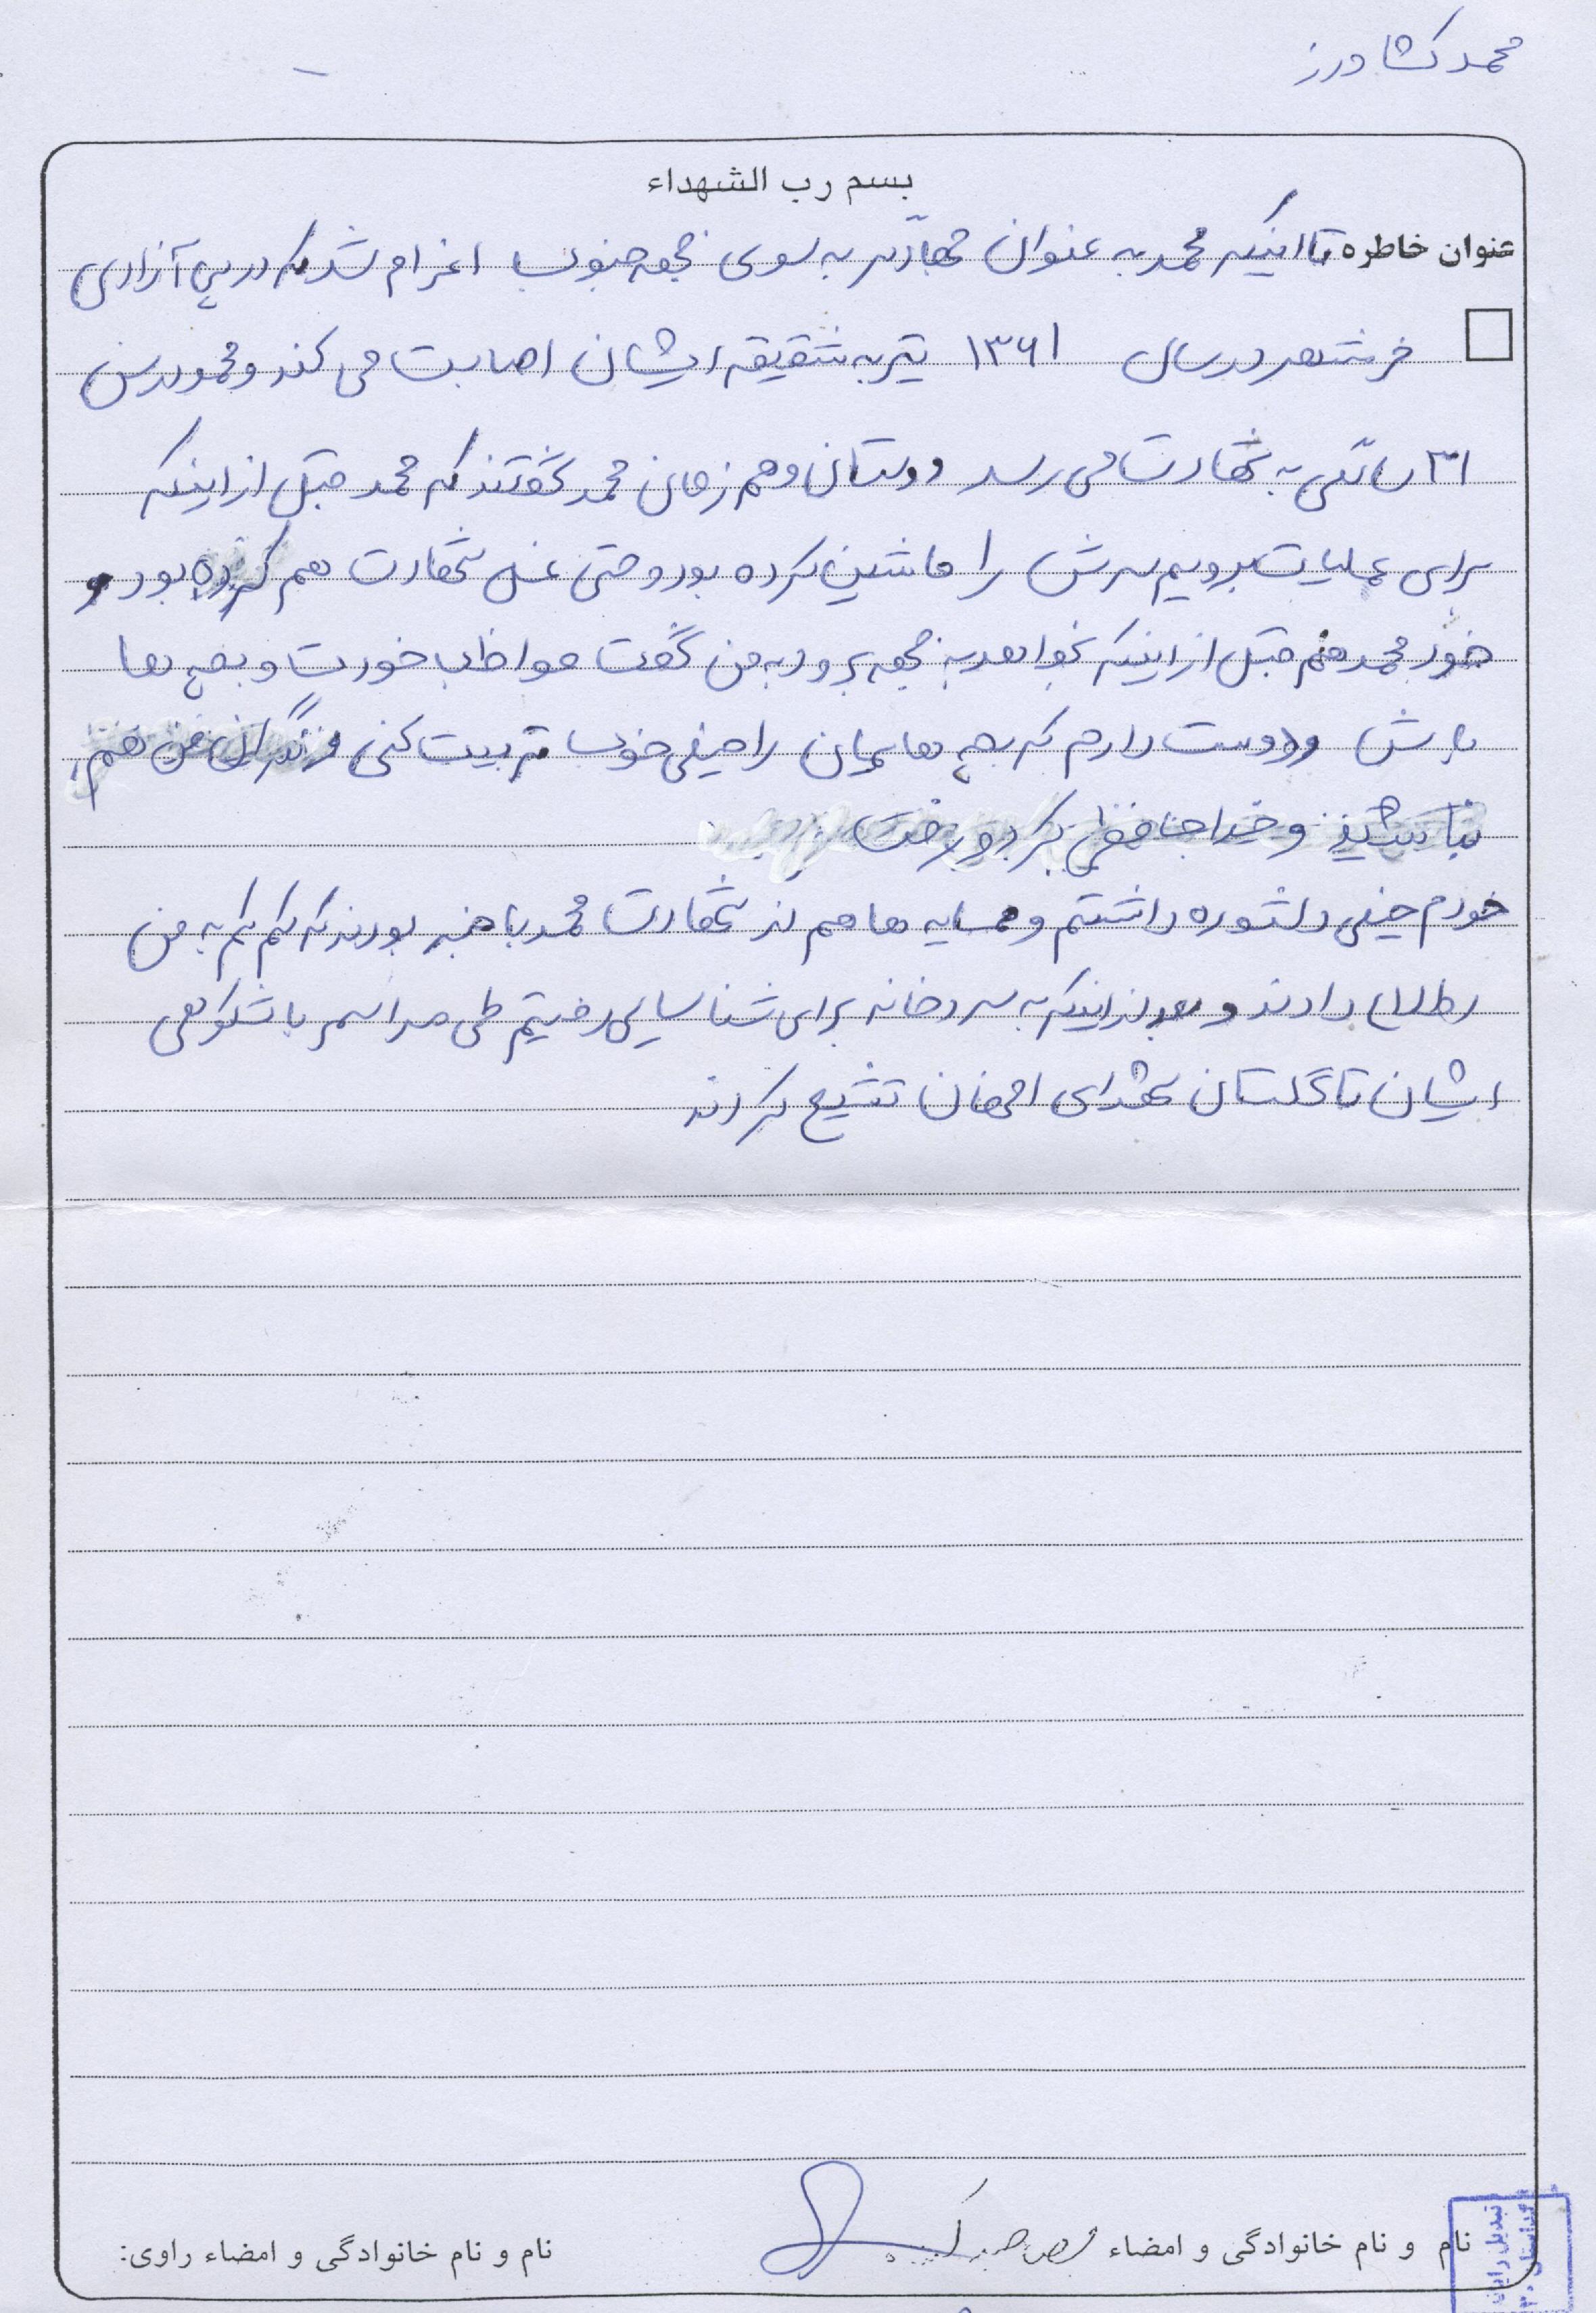 محمد کشاورز
بسم رب الشهداء
عنوان خاطره تا اینکه محمد به عنوان به سوی جبهه جنوب اعزام شد که در پی آزادی
خرمشهر در سال ۱۳۶۱ تیر به شقیقه ایشان اصابت می کند و محمد در سن
۳۱ سالگی به شهادت می رسد دوستان و هم زمان محمد گفتند که محمد قبل از اینکه
برای عملیات برویم سرش را ماشین کرده بود و حتی غسل شهادت هم کرده بود و
خود محمد هم قبل از اینکه بخواهد به جبهه برود به من گفت مواظب خودت و بچه ها
باش و دوست دارم که بچه هایمان را خیلی خوب تربیت کنی و نگران من هم
نباشید و خداحافظی کرد و رفت
خودم خیلی دلشوره داشتم و همسایه ها هم از شهادت محمد با خبر بودند که کم کم به من
اطلاع دادند و بعد از اینکه به سردخانه برای شناسایی رفتیم طی مراسم باشکوهی
ایشان تا گلستان شهدای اصفهان تشییع کردند
نام و نام خانوادگی و امضاء
نام و نام خانوادگی و امضاء راوی: